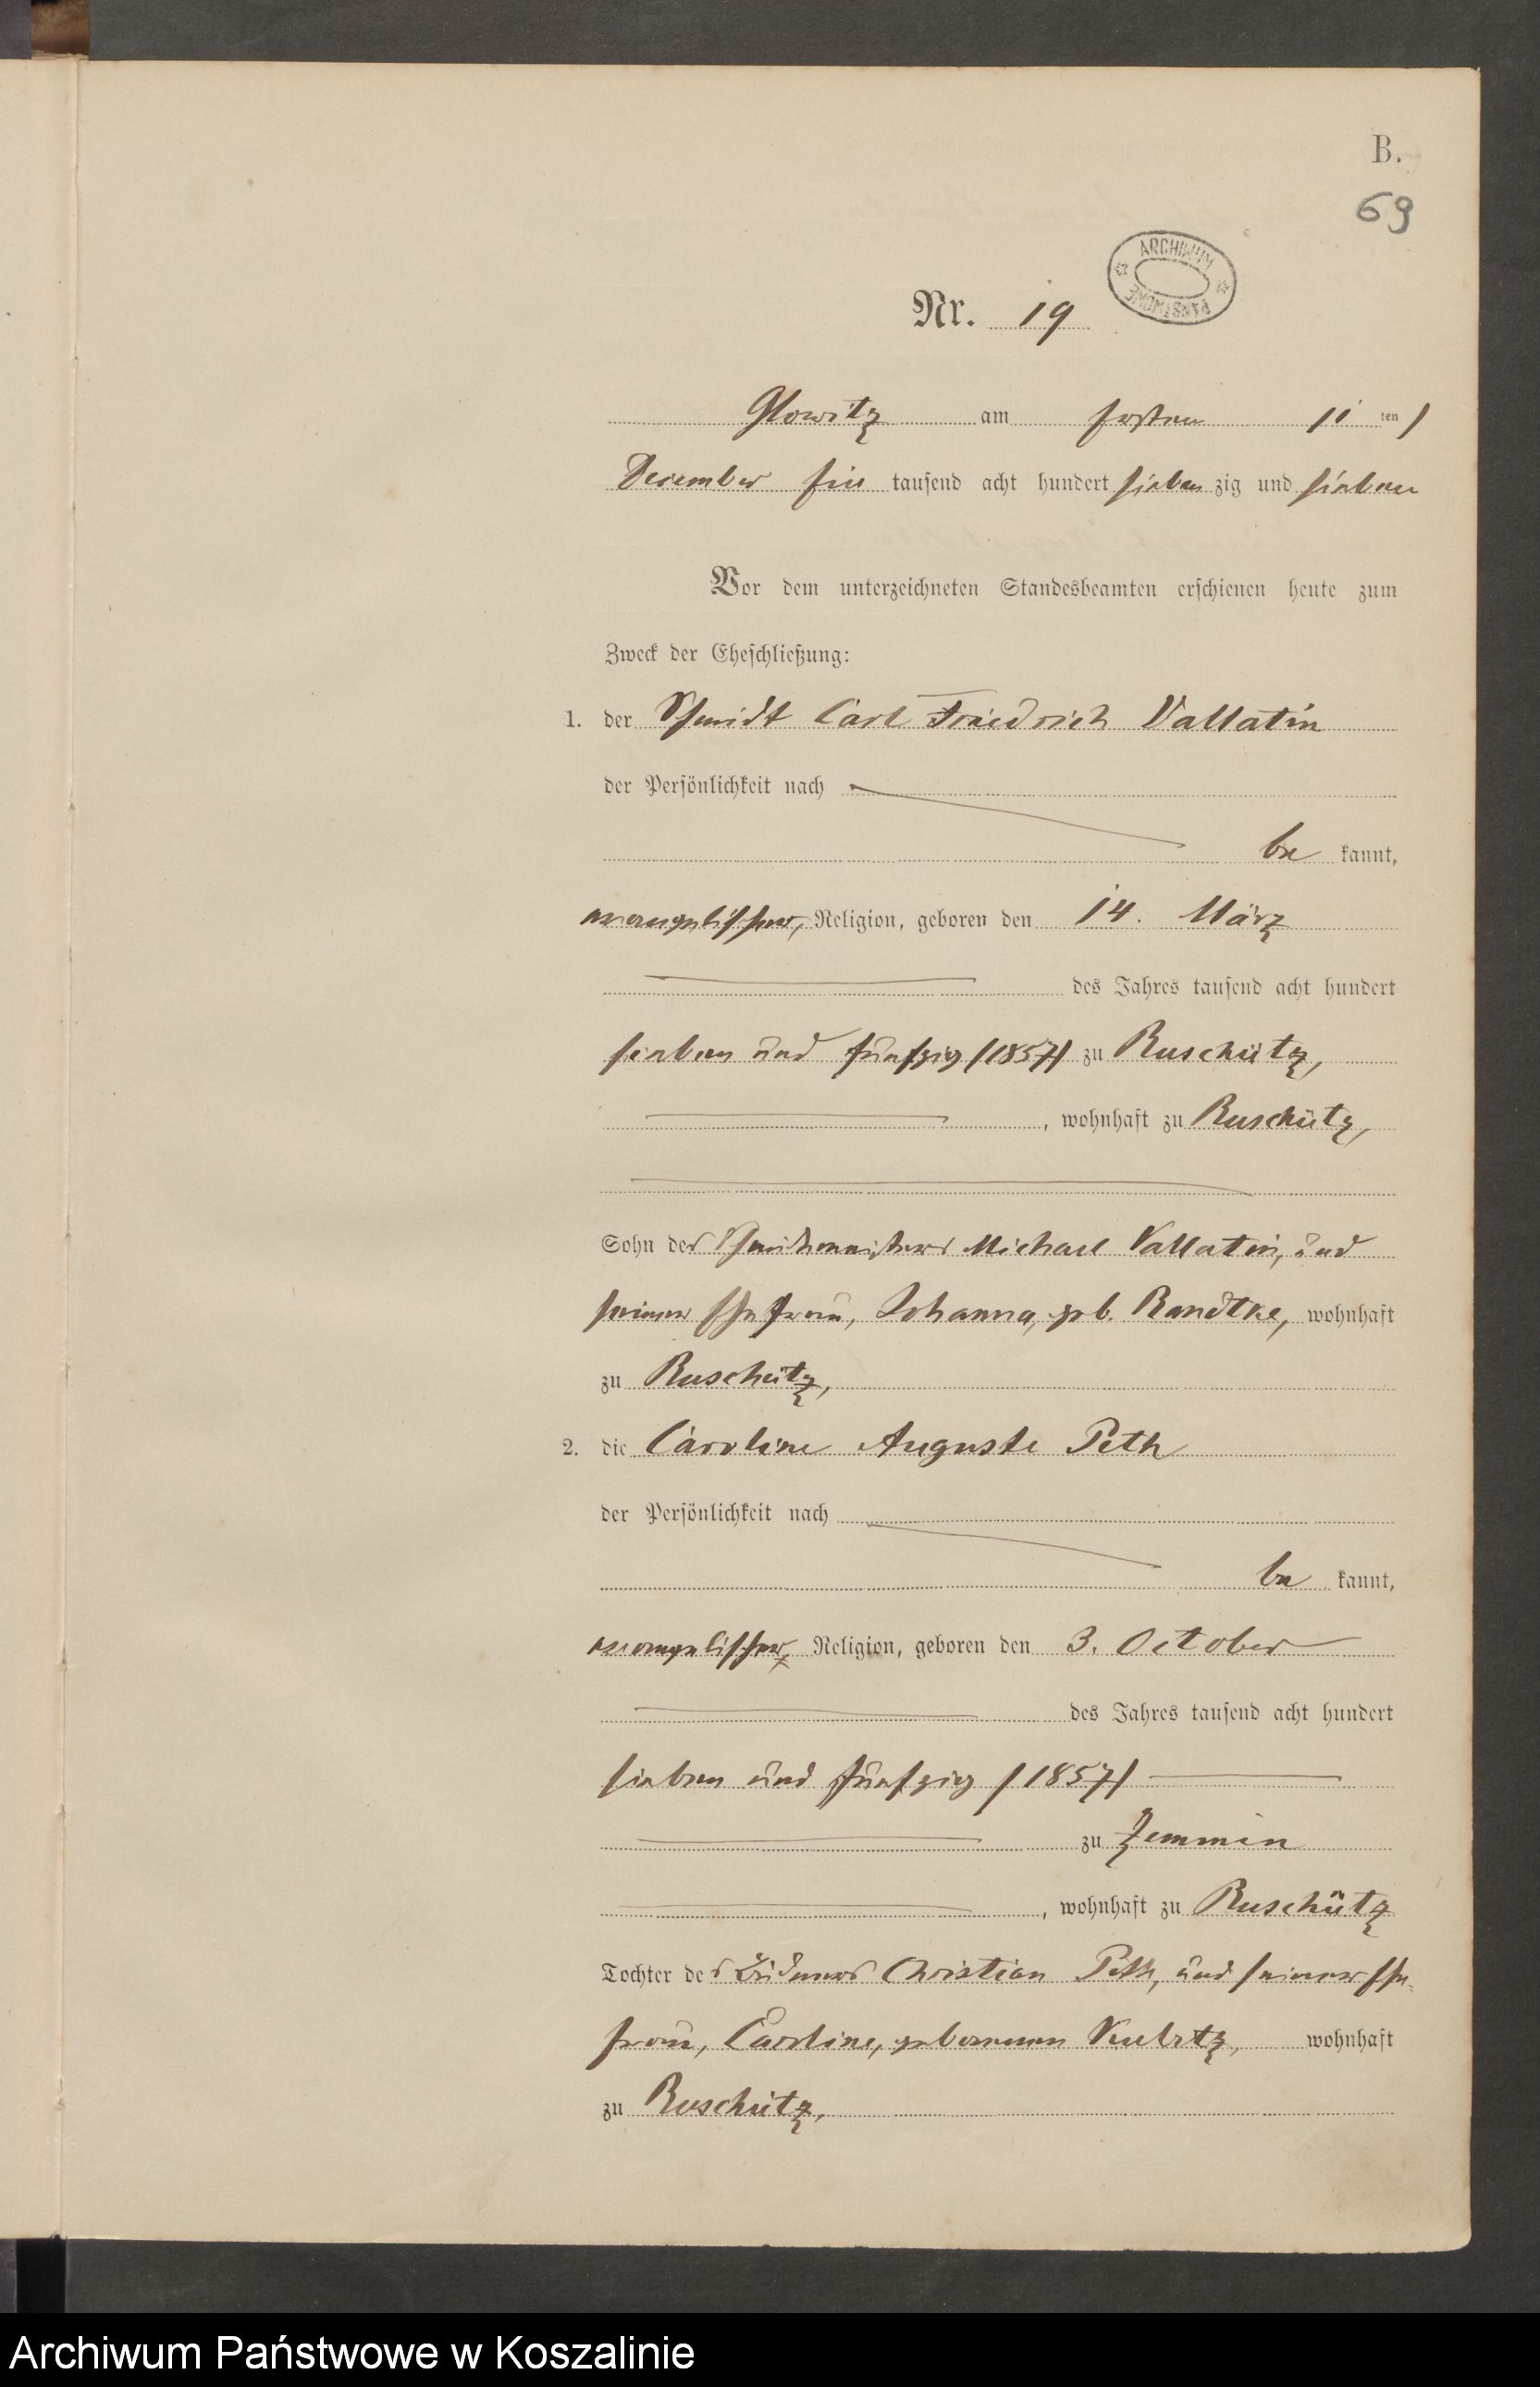 B.
69
ARCHIWUM
PAŃSTWOWE
Nr. 19
Glowitz am ersten /1 ten /
December ein tausend acht hundert sieben zig und sieben
Vor dem unterzeichneten Standesbeamten erschienen heute zum
Zweck der Eheschließung:
1. der Schmidt Carl Friedrich Vallatin
der Persönlichkeit nach
be kannt,
evangelischer, Religion, geboren den 14. März
des Jahres tausend acht hundert
sieben und fünfzig /1857/ zu Ruschütz,
, wohnhaft zu Ruschütz,
Sohn des Schmidtmeisters Michael Vallatin, und
seiner Ehefrau, Johanna, geb. Randtke, wohnhaft
zu Ruschütz,
2. die Caroline Auguste Peth
der Persönlichkeit nach
be kannt,
evangelischer, Religion, geboren den 3. October
des Jahres tausend acht hundert
sieben und fünfzig /1857/
zu Zemmin
, wohnhaft zu Ruschütz
Tochter des Büdners Christian Peth, und seiner Ehe-
frau, Caroline, geborenen wohnhaft
zu Ruschütz,
Archiwum Państwowe w Koszalinie